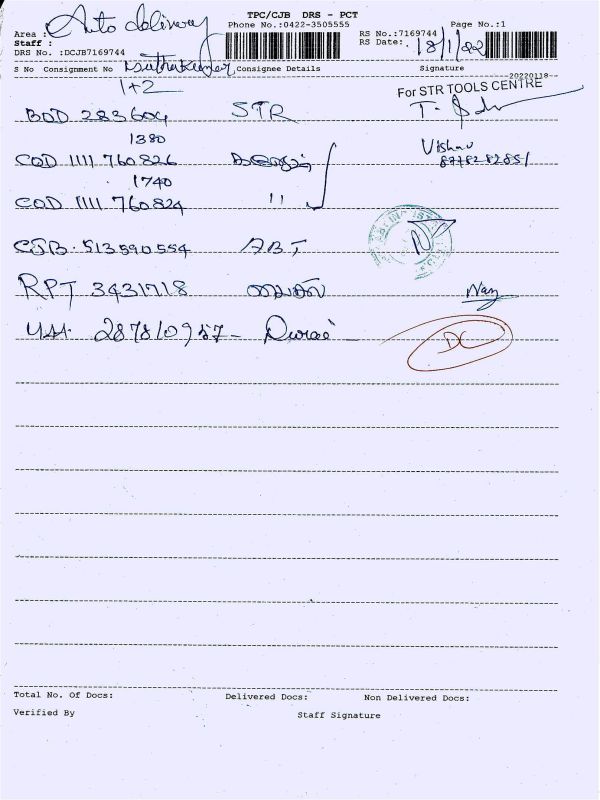 TPC/CJB DRS - PCT
Area : Auto delivery Phone No.:0422-3505555 Page No.:1
Staff : RS No.:7169744
DRS No. :DCJB7169744 RS Date: 18/1/22
S No Consignment No Muthukumar Consignee Details Signature
20220118
1+2 For STR TOOLS CENTRE
BOD 283604 STR
1380
COD 1111 760826 Vishnu
1740
COD 1111 760824 "
CJB 513590554 ABT
RPT 3431718
287810957 - Durai DC
Total No. Of Docs: Delivered Docs: Non Delivered Docs:
Verified By Staff Signature